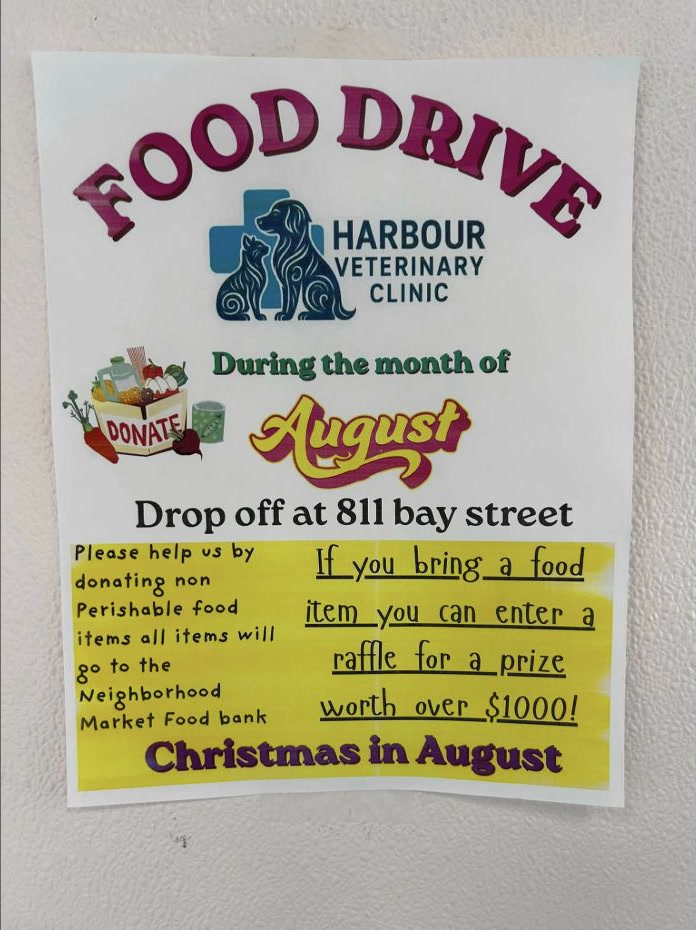 FOOD DRIVE
HARBOUR
VETERINARY
CLINIC
During the month of
DONATE
August
Drop off at 811 bay street
Please help us by
donating non
Perishable food
items all items will
go to the
Neighborhood
Market Food bank
If you bring a food
item you can enter a
raffle for a prize
worth over $1000!
Christmas in August